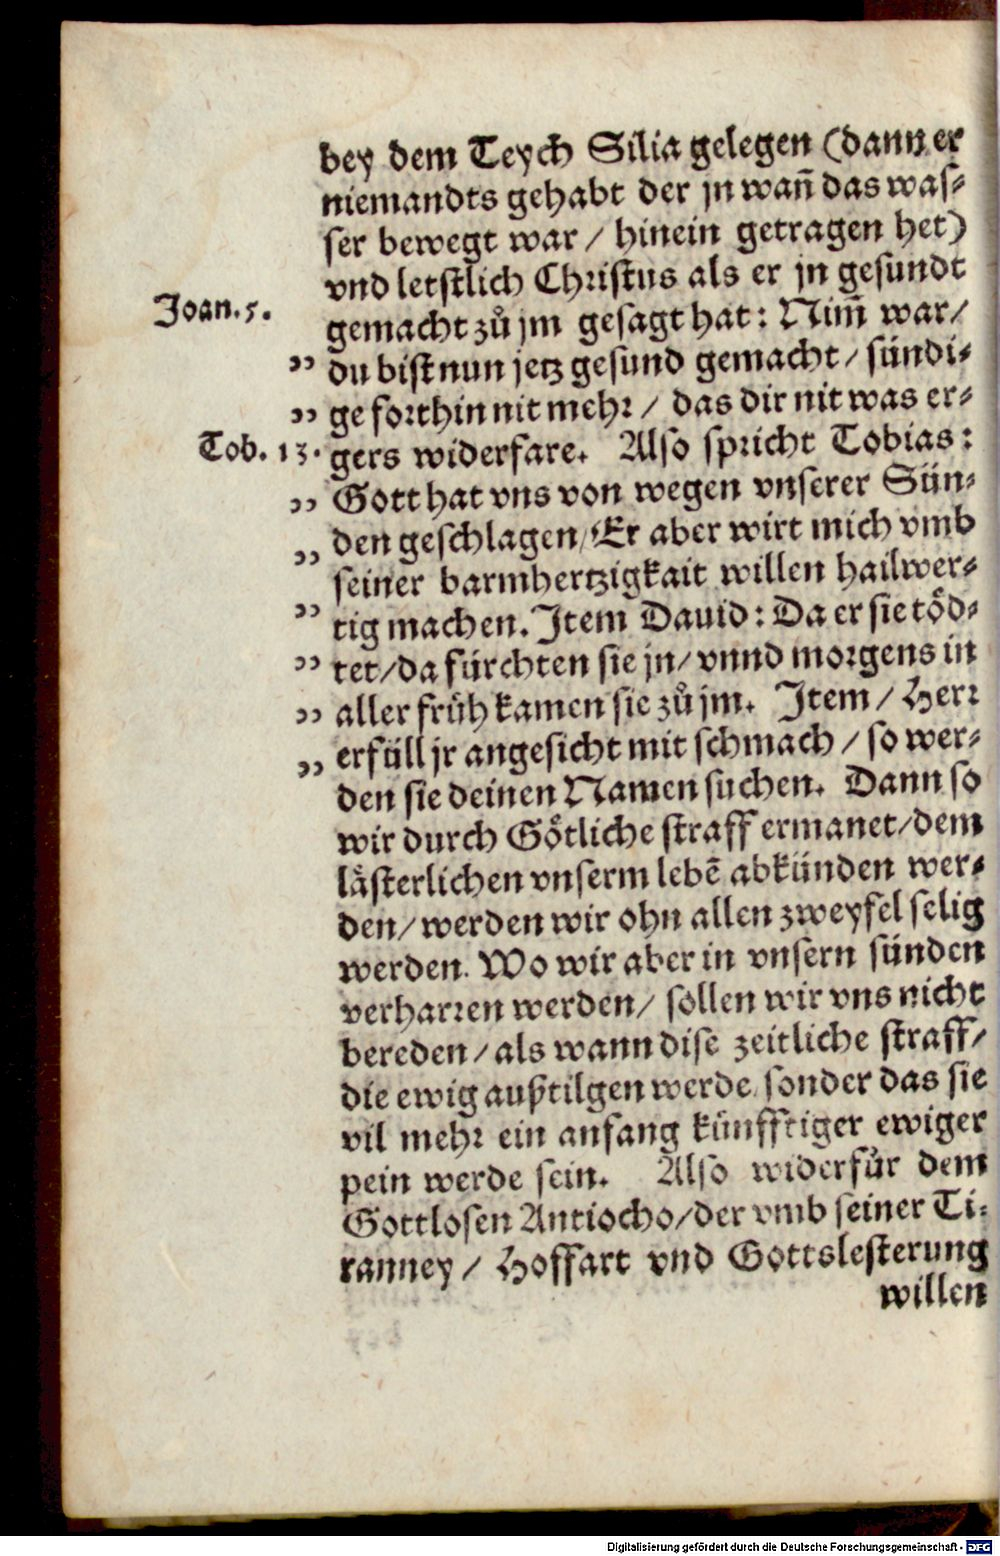 bey dem Teych Silia gelegen (dann er
niemandts gehabt der jn wañ das was-
ser bewegt war / hinein getragen het)
vnd letstlich Christus als er jn gesundt
Joan. 5.
gemacht zů jm gesagt hat: Nim̃ war /
„ du bist nun jetz gesund gemacht / sündi-
„ ge forthin nit mehr / das dir nit was er-
Tob. 13. gers widerfare. Also spricht Tobias:
„ Gott hat vns von wegen vnserer Sün-
„ den geschlagen / Er aber wirt mich vmb
seiner barmhertzigkait willen hailwer-
„ tig machen. Item Dauid: Da er sie töd-
„ tet / da fürchten sie jn / vnnd morgens in
„ aller früh kamen sie zů jm. Item / Herr
„ erfüll jr angesicht mit schmach / so wer-
den sie deinen Namen suchen. Dann so
wir durch Götliche straff ermanet / dem
lästerlichen vnserm lebē abkünden wer-
den / werden wir ohn allen zweyfel selig
werden. Wo wir aber in vnsern sünden
verharren werden / sollen wir vns nicht
bereden / als wann dise zeitliche straff /
die ewig außtilgen werde, sonder das sie
vil mehr ein anfang künfftiger ewiger
pein werde sein. Also widerfůr dem
Gottlosen Antiocho / der vmb seiner Ti-
ranney / Hoffart vnd Gottslesterung
willen
Digitalisierung gefördert durch die Deutsche Forschungsgemeinschaft - DFG